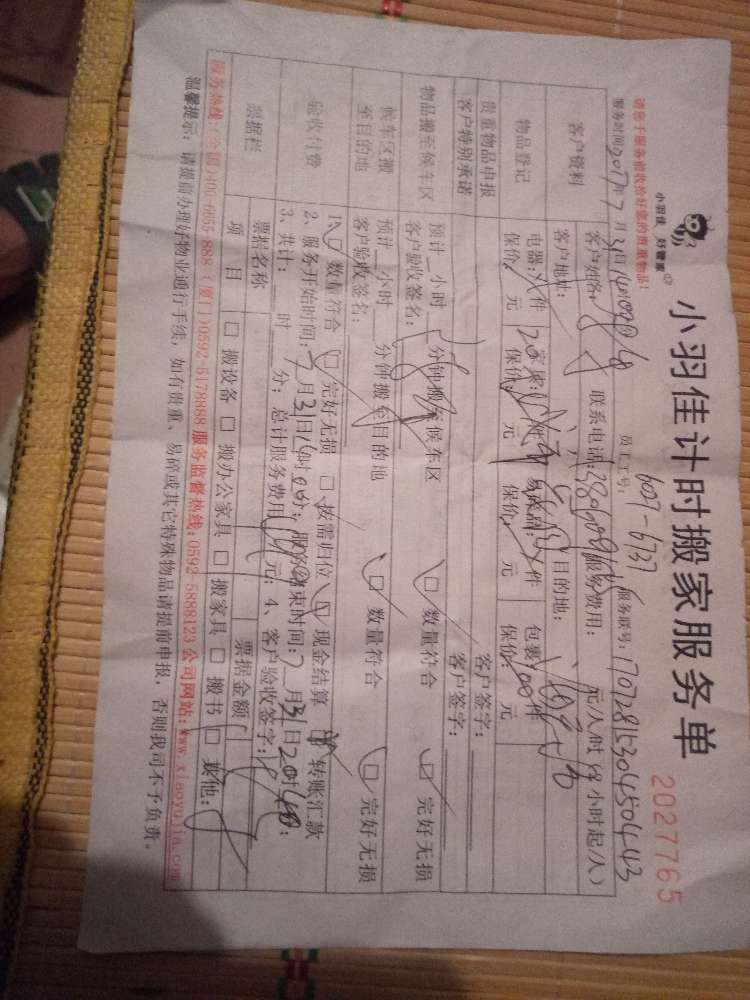 小羽佳 好管家
小羽佳计时搬家服务单
2027765
请您于服务前收拾好您的贵重物品！
服务时间:2017年7月31日
员工工号: 6027-6737
服务联号: 707281530450443
客户资料
客户姓名:
联系电话:
服务费用: 元/人/时( 小时起/人)
客户地址:
目的地:
物品登记
电器: 件
家俱: 件
易碎品: 件
包裹: 100件
保价: 元
保价: 元
保价: 元
保价: 元
贵重物品申报
客户特别承诺
客户签字:
客户签字:
物品搬至候车区
预计__小时__分钟搬至候车区
客户验收签名:
□ 数量符合
□ 完好无损
候车区搬至目的地
预计__小时__分钟搬至目的地
客户验收签名:
□ 数量符合
□ 完好无损
验收付费
1、□ 数量符合 □ 完好无损 □ 按需归位 □ 现金结算 □ 转账汇款
2、服务开始时间:7月31日 时 分; 服务结束时间:7月31日20时40分;
3、共计: 时 分; 总计服务费用 元; 4、客户验收签字:
票据栏
票据名称
票据金额
项 目
□ 搬设备 □ 搬办公家具 □ 搬家具 □ 搬书 □ 其他:
服务热线:(全国)400-6655-888 (厦门)0592-5178888 服务监督热线:0592-5888123 公司网站:www.xiaoyujia.com
温馨提示: 请提前办理好物业通行手续, 如有贵重、易碎或其它特殊物品请提前申报, 否则我司不予负责。